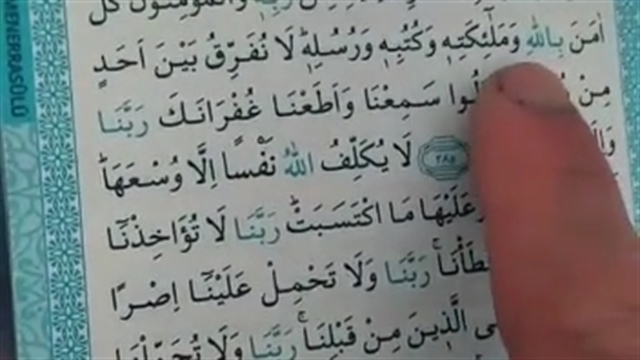 وَالْمُؤْمِنُونَ كُلٌّ
اٰمَنَ بِاللّٰهِ وَمَلٰٓئِكَتِهٖ وَكُتُبِهٖ وَرُسُلِهٖۜ لَا نُفَرِّقُ بَيْنَ اَحَدٍ
مِنْ سَمِعْنَا وَاَطَعْنَا غُفْرَانَكَ رَبَّنَا
٢٨٥ لَا يُكَلِّفُ اللّٰهُ نَفْسًا اِلَّا وُسْعَهَاۜ
عَلَيْهَا مَا اكْتَسَبَتْۜ رَبَّنَا لَا تُؤَاخِذْنَٓا
رَبَّنَا وَلَا تَحْمِلْ عَلَيْنَٓا اِصْرًا
الَّذٖينَ مِنْ قَبْلِنَاۚ رَبَّنَا وَلَا